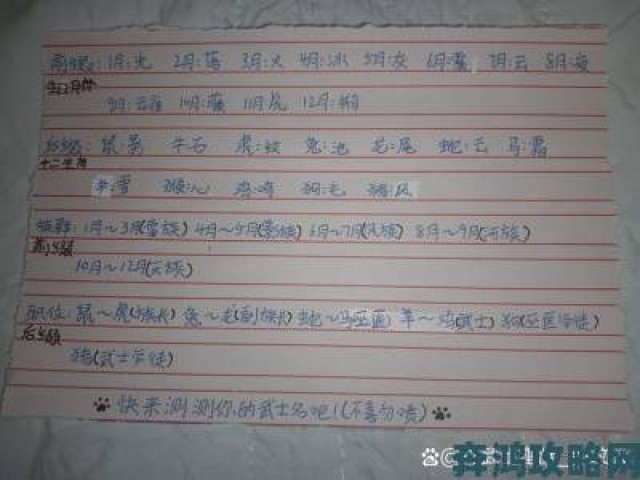 前缀:1月:光 2月:莲 3月:火 4月:冰 5月:灰 6月: 7月:云 8月:
生日月份
9月:云雀 10月:藤 11月:虎 12月:
后缀:鼠:影 牛:石 虎:纹 兔:池 龙:尾 蛇:云 马:霜
十二生肖
羊:雪 猴:心 鸡: 狗:毛 猪:风
族群:1月~3月(雷族) 4月~5月(影族) 6月~7月(风族) 8月~9月(河族)
前缀
10月~12月(天族)
职位:鼠~虎(族长) 兔~龙(副族长) 蛇~马(巫医) 羊~鸡(武士) 狗(巫医学徒)
后缀
猪(武士学徒)
快来测测你的武士名吧!(不喜勿喷)
奔鸿攻略网